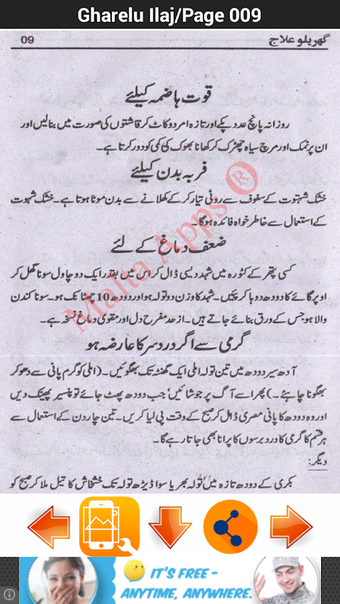 Gharelu Ilaj/Page 009
گھریلو علاج
09
قوت ہاضمہ کیلئے
روزانہ پانچ عدد پکے اور تازہ امرود کاٹ کر قاشتوں کی صورت میں بنالیں اور
ان پر نمک اور مرچ سیاہ چھڑک کر کھانا بھوک کی کمی کو دور کرتا ہے۔
فربہ بدن کیلئے
خشک شہتوت کے سفوف سے روٹی تیار کر کے کھلانے سے بدن موٹا ہوتا ہے۔ خشک شہتوت
کے استعمال سے خاطر خواہ فائدہ ہوگا۔
ضعف دماغ کے لئے
کسی پتھر کے کٹورہ میں شہد دیسی ڈال کر اس میں بقدر ایک دو چاول سونا گھس کر
اوپر گائے کا دودھ دوہا کر پئیں۔ شہد کا وزن دو تولہ ہو اور دودھ 10 چھٹانک ہو۔ سونا کندن
والا ہو جس کے ورق بنائے جاتے ہیں۔ از حد مفرح دل اور مقوی دماغ نسخہ ہے۔
گرمی سے اگر درد سر کا عارضہ ہو
آدھ سیر دودھ میں تین تولہ املی ایک گھنٹہ تک بھگوئیں۔ (املی کو گرم پانی سے دھو کر
بھگونا چاہئے۔) پھر اسے آگ پر جوشائیں جب دودھ پھٹ جائے تو پنیر پھینک دیں
اور وہ دودھ کا پانی مصری ڈال کر صبح کے وقت پی لیا کریں۔ تین چار دن کے استعمال سے
ہر قسم کا گرمی کا درد برسوں کا پرانا بھی جاتا رہے گا۔
دیگر:
بکری کے دودھ تازہ میں تولہ بھر یا سوا ڈیڑھ تولہ تک خشخاش کا تیل ملا کر صبح کو
Malta Apps ®
IT'S FREE -
ANYTIME, ANYWHERE.